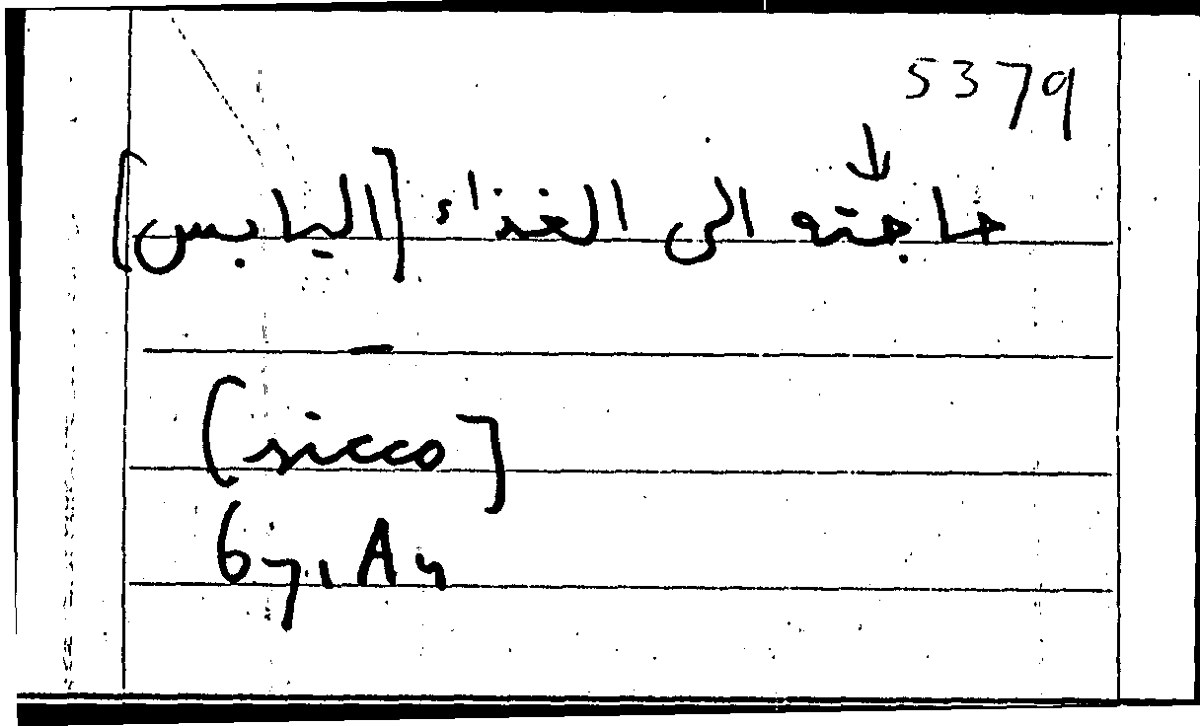 5379
حاجته الى الغذاء [اليابس]
[sicco]
671A4